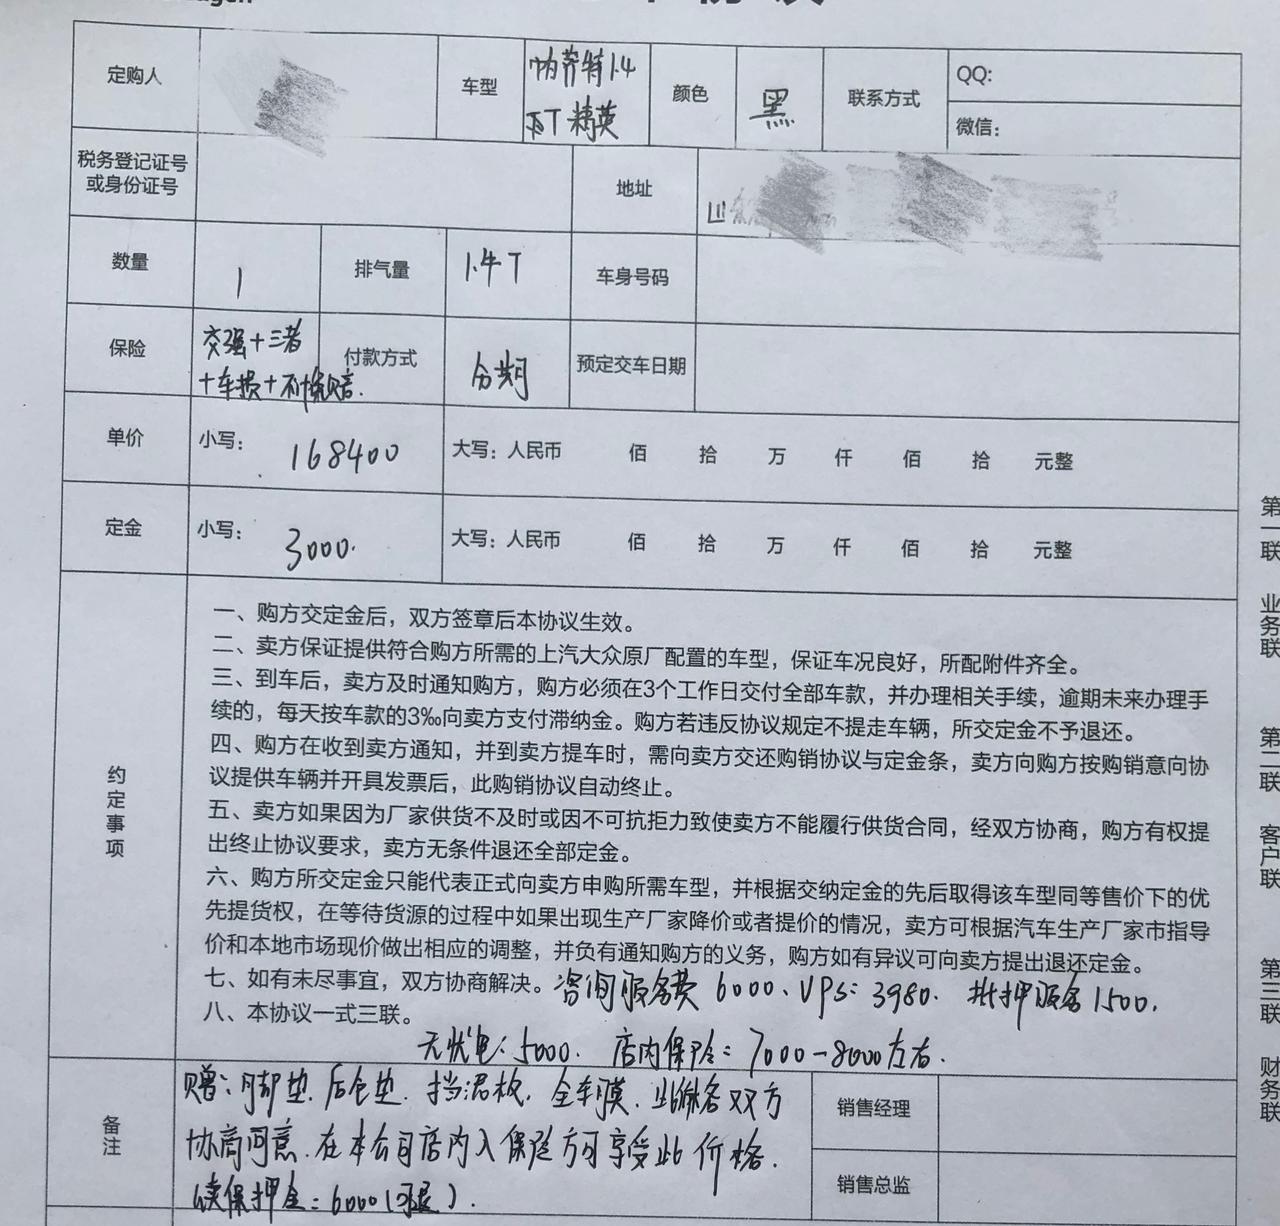 定购人 车型 帕萨特1.4 颜色 黑 联系方式 QQ:
T 精英 微信：
税务登记证号
或身份证号 地址
数量 1 排气量 1.4T 车身号码
保险 交强+三者 付款方式 分期 预定交车日期
+车损+不计免赔.
单价 小写： 168400 大写：人民币 佰 拾 万 仟 佰 拾 元整
定金 小写： 3000. 大写：人民币 佰 拾 万 仟 佰 拾 元整
约定事项
一、购方交定金后，双方签章后本协议生效。
二、卖方保证提供符合购方所需的上汽大众原厂配置的车型，保证车况良好，所配附件齐全。
三、到车后，卖方及时通知购方，购方必须在3个工作日交付全部车款，并办理相关手续，逾期未来办理手
续的，每天按车款的3‰向卖方支付滞纳金。购方若违反协议规定不提走车辆，所交定金不予退还。
四、购方在收到卖方通知，并到卖方提车时，需向卖方交还购销协议与定金条，卖方向购方按购销意向协
议提供车辆并开具发票后，此购销协议自动终止。
五、卖方如果因为厂家供货不及时或因不可抗拒力致使卖方不能履行供货合同，经双方协商，购方有权提
出终止协议要求，卖方无条件退还全部定金。
六、购方所交定金只能代表正式向卖方申购所需车型，并根据交纳定金的先后取得该车型同等售价下的优
先提货权，在等待货源的过程中如果出现生产厂家降价或者提价的情况，卖方可根据汽车生产厂家市指导
价和本地市场现价做出相应的调整，并负有通知购方的义务，购方如有异议可向卖方提出退还定金。
七、如有未尽事宜，双方协商解决。咨询服务费 6000、VPS: 3980. 抵押服务1500.
八、本协议一式三联。
无忧电: 5000. 店内保险: 7000-8000左右.
备注
赠: 脚垫. 后仓垫. 挡泥板. 全车膜. 此价格双方
协商同意. 在本公司店内入保险方可享受此价格.
续保押金: 6000(可退).
销售经理
销售总监
第一联 业务联
第二联 客户联
第三联 财务联